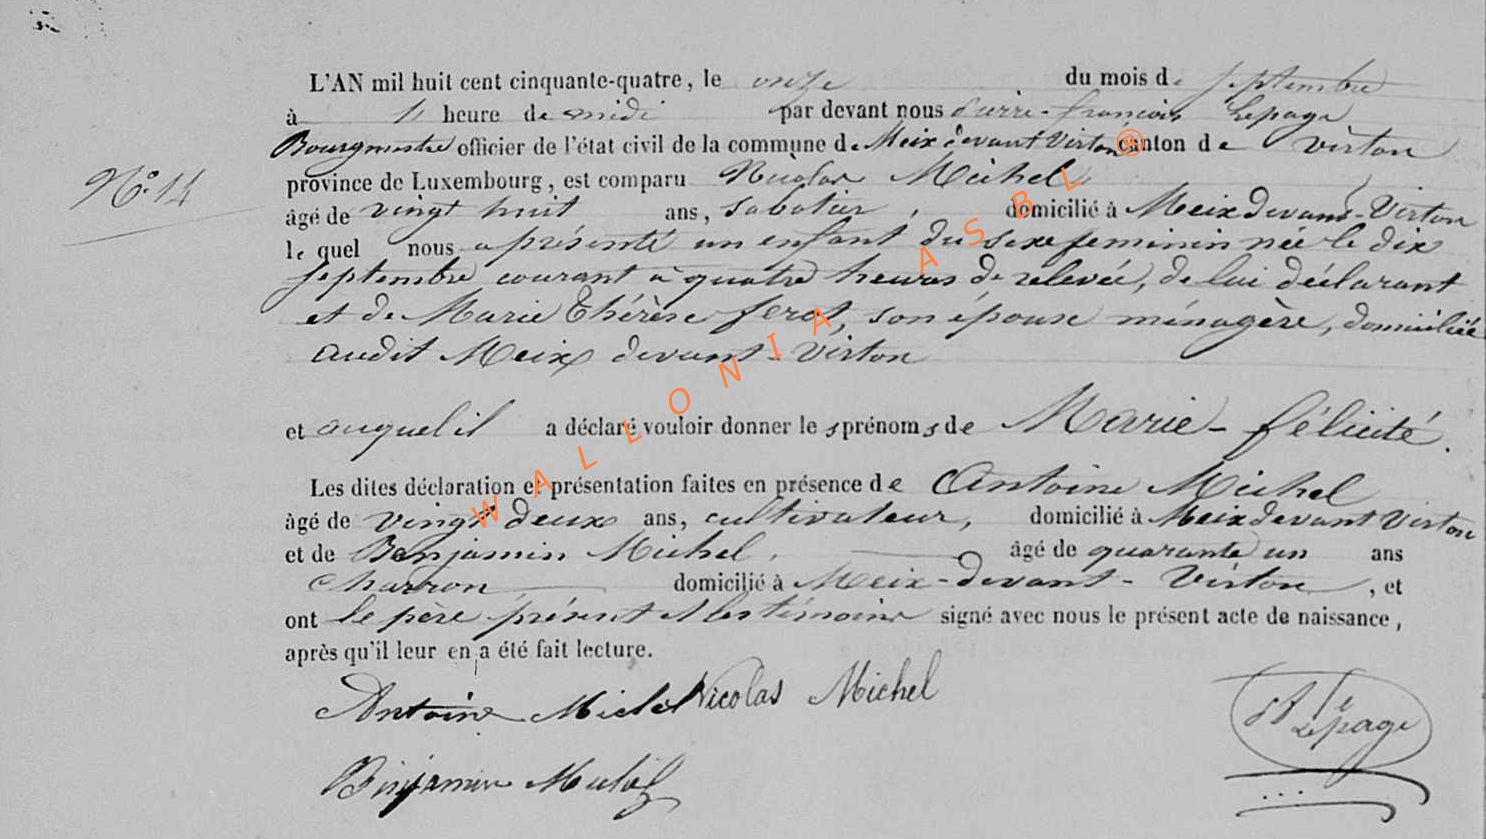 L'AN mil huit cent cinquante-quatre, le onze du mois de septembre
à 11 heure de midi par devant nous Pierre-françois Lepage
Bourgmestre officier de l'état civil de la commune de Meix devant Virton canton de Virton
N° 14
province de Luxembourg, est comparu Nicolas Michel
âgé de vingt huit ans, sabotier, domicilié à Meix devant-Virton
lequel nous a présenté un enfant du sexe feminin née le dix
septembre courant à quatre heures de relevée, de lui déclarant
et de Marie Thérèse feret, son épouse ménagère, domiciliée
audit Meix devant-Virton
et auquel il a déclaré vouloir donner les prénoms de Marie-félicité.
Les dites déclaration et présentation faites en présence de Antoine Michel
âgé de vingt deux ans, cultivateur, domicilié à Meix devant Virton
et de Benjamin Michel, âgé de quarante un ans
charron domicilié à Meix-devant-Virton, et
ont le père présent et les témoins signé avec nous le présent acte de naissance,
après qu'il leur en a été fait lecture.
Antoine Michel Nicolas Michel
Lepage
Benjamin Michel
WALLONIA ASBL ®